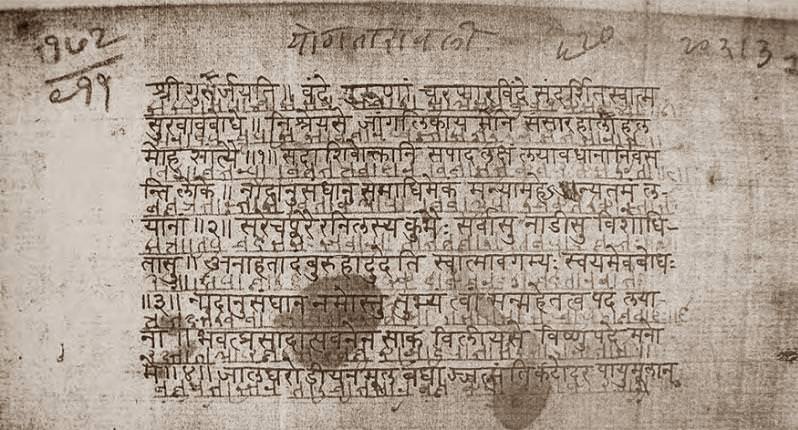 १७८२ योगतारावली
श्रीगुरुर्जयति ॥ वंदे गुरूणां चरणारविंदे संदर्शितस्वात्म
सुखावबोधे ॥ निश्रेयसे जांगलिकायमाने संसारहालाहल
मोहशात्यै ॥१॥ सदाशिवोक्तानि सपादलक्षं लयावधानानि वस
न्ति लोके ॥ नादानुसंधान समाधिमेकं मन्यामहे न्यतमं ल-
यानां ॥२॥ सरेचपूरैरनिलस्य कुंभैः सर्वासु नाडीसु विशोधि-
तासु ॥ अनाहतादंबुरुहादुदेति स्वात्मावगम्यः स्वयमेव बोधः
॥३॥ नादानुसंधान नमोस्तु तुभ्यं त्वां मन्महे तत्वपदं लया-
नां ॥ भवत्प्रसादात्पवनेन साकं विलीयते विष्णुपदे मनो
मे ॥४॥ जालंधरोड्डीयनमूलबंधा कंठोदरपायुमूलान्